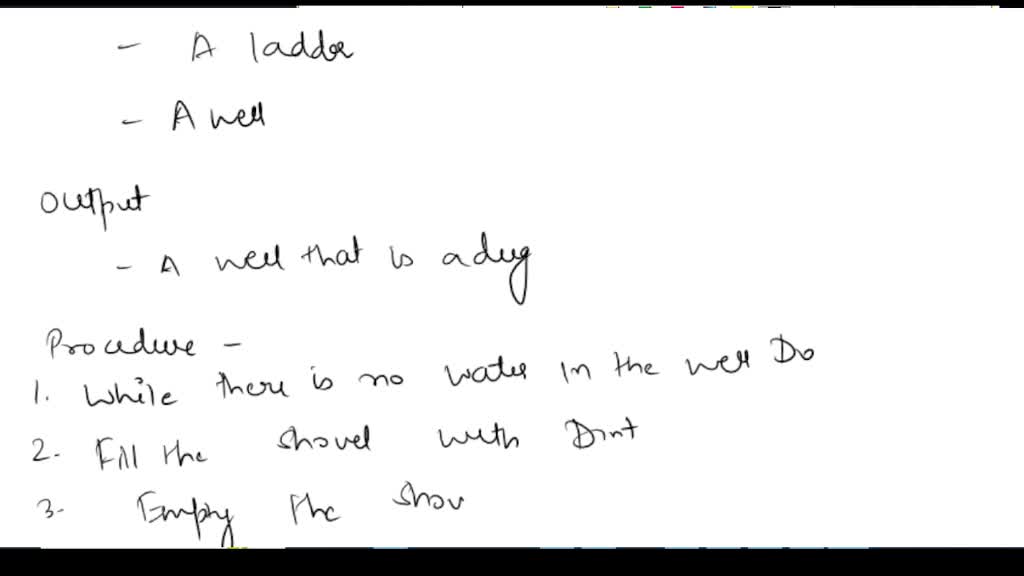 - A ladder
- A well
Output
- A well that is a dug
Procedure -
1. While there is no water in the well Do
2. Fill the shovel with Dirt
3. Empty the shov